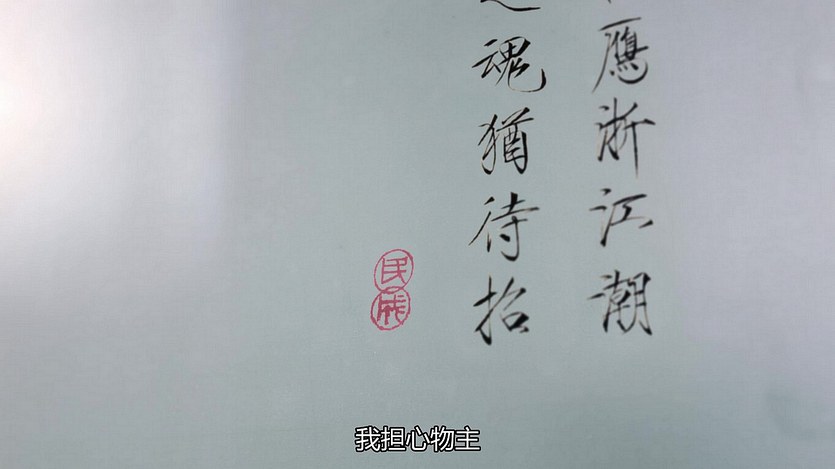 應浙江潮
魂猶待招
民
我担心物主